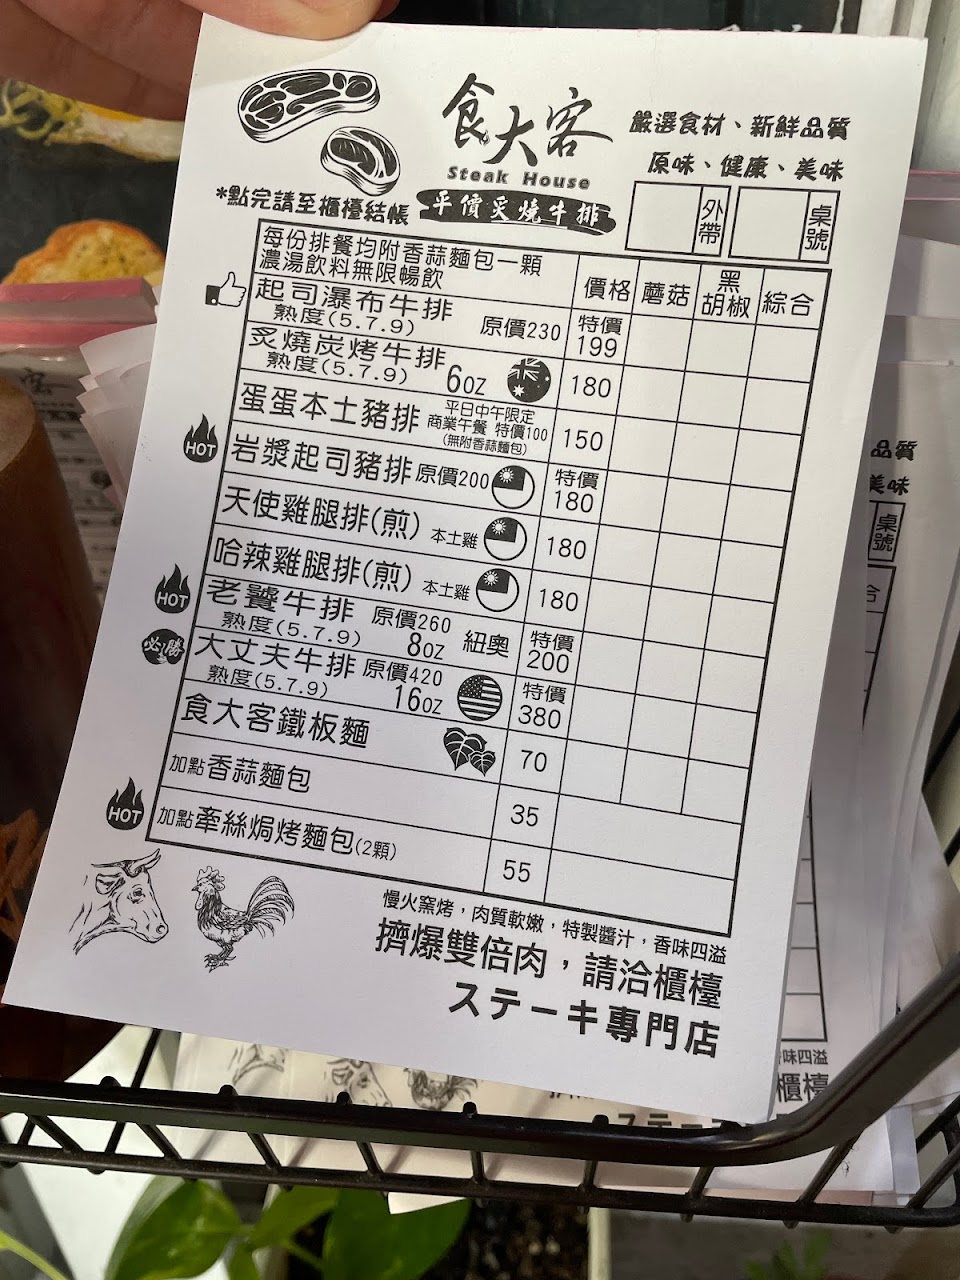 食大客
Steak House
平價炙燒牛排
嚴選食材、新鮮品質
原味、健康、美味
*點完請至櫃檯結帳
外帶
桌號
每份排餐均附香蒜麵包一顆
濃湯飲料無限暢飲
價格 蘑菇 黑胡椒 綜合
起司瀑布牛排 原價230 特價
熟度(5.7.9) 199
炙燒炭烤牛排 6oz 180
熟度(5.7.9)
蛋蛋本土豬排 平日中午限定 150
商業午餐 特價100
(無附香蒜麵包)
HOT 岩漿起司豬排 原價200 特價
180
天使雞腿排(煎) 本土雞 180
哈辣雞腿排(煎) 本土雞 180
HOT 老饕牛排 原價260 特價
熟度(5.7.9) 8oz 紐奧 200
必勝 大丈夫牛排 原價420 特價
熟度(5.7.9) 16oz 380
食大客鐵板麵 70
加點香蒜麵包 35
HOT 加點牽絲焗烤麵包(2顆) 55
慢火窯烤，肉質軟嫩，特製醬汁，香味四溢
擠爆雙倍肉，請洽櫃檯
ステーキ專門店
品質
美味
桌號
合
味四溢
櫃檯
ステー